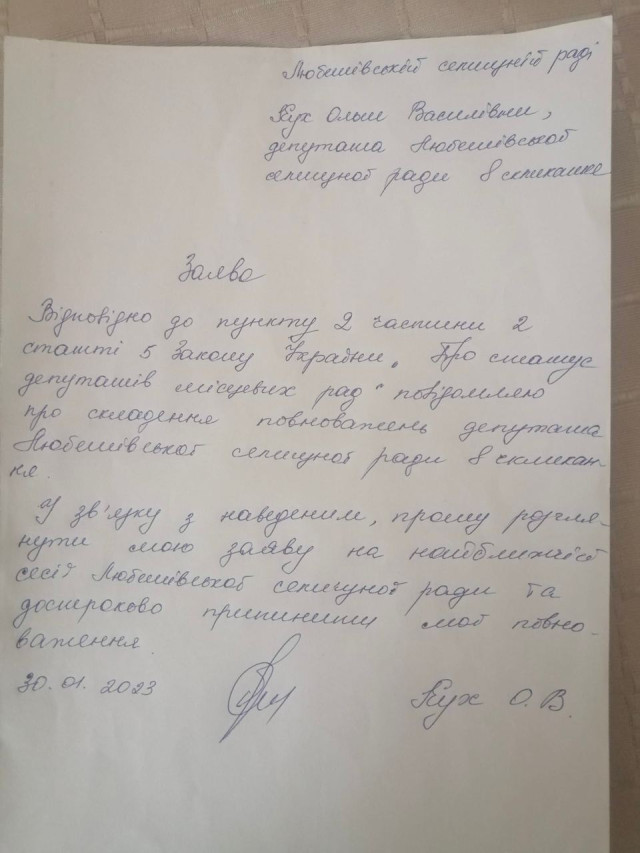 Любешівській селищній раді
Кух Ольги Василівни,
депутата Любешівської
селищної ради 8 скликання
Заява
Відповідно до пункту 2 частини 2
статті 5 Закону України „Про статус
депутатів місцевих рад" повідомляю
про складення повноважень депутата
Любешівської селищної ради 8 скликан-
ня.
У зв'язку з наведеним, прошу розгля-
нути мою заяву на найближчій
сесії Любешівської селищної ради та
достроково припинити мої повно-
важення.
30.01.2023
Кух О.В.